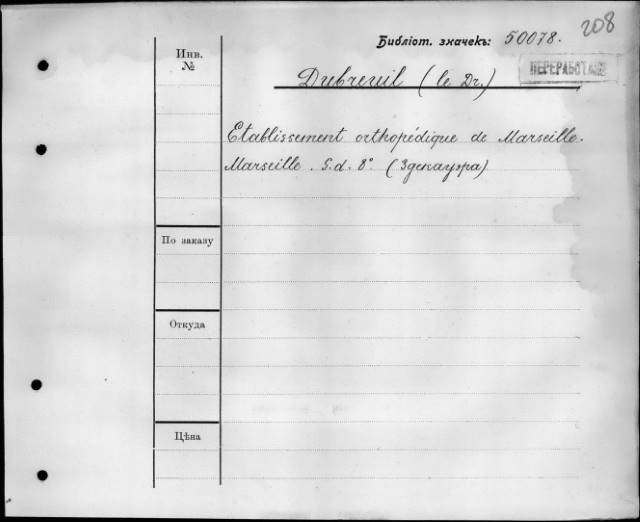 208
Библіот. значекъ: 50078.
Инв.
№
ПЕРЕРАБОТАНО
Dubreuil (le Dr.)
Etablissement orthopédique de Marseille.
Marseille. S. d. 8° (3 декауэра)
По заказу
Откуда
Цѣна